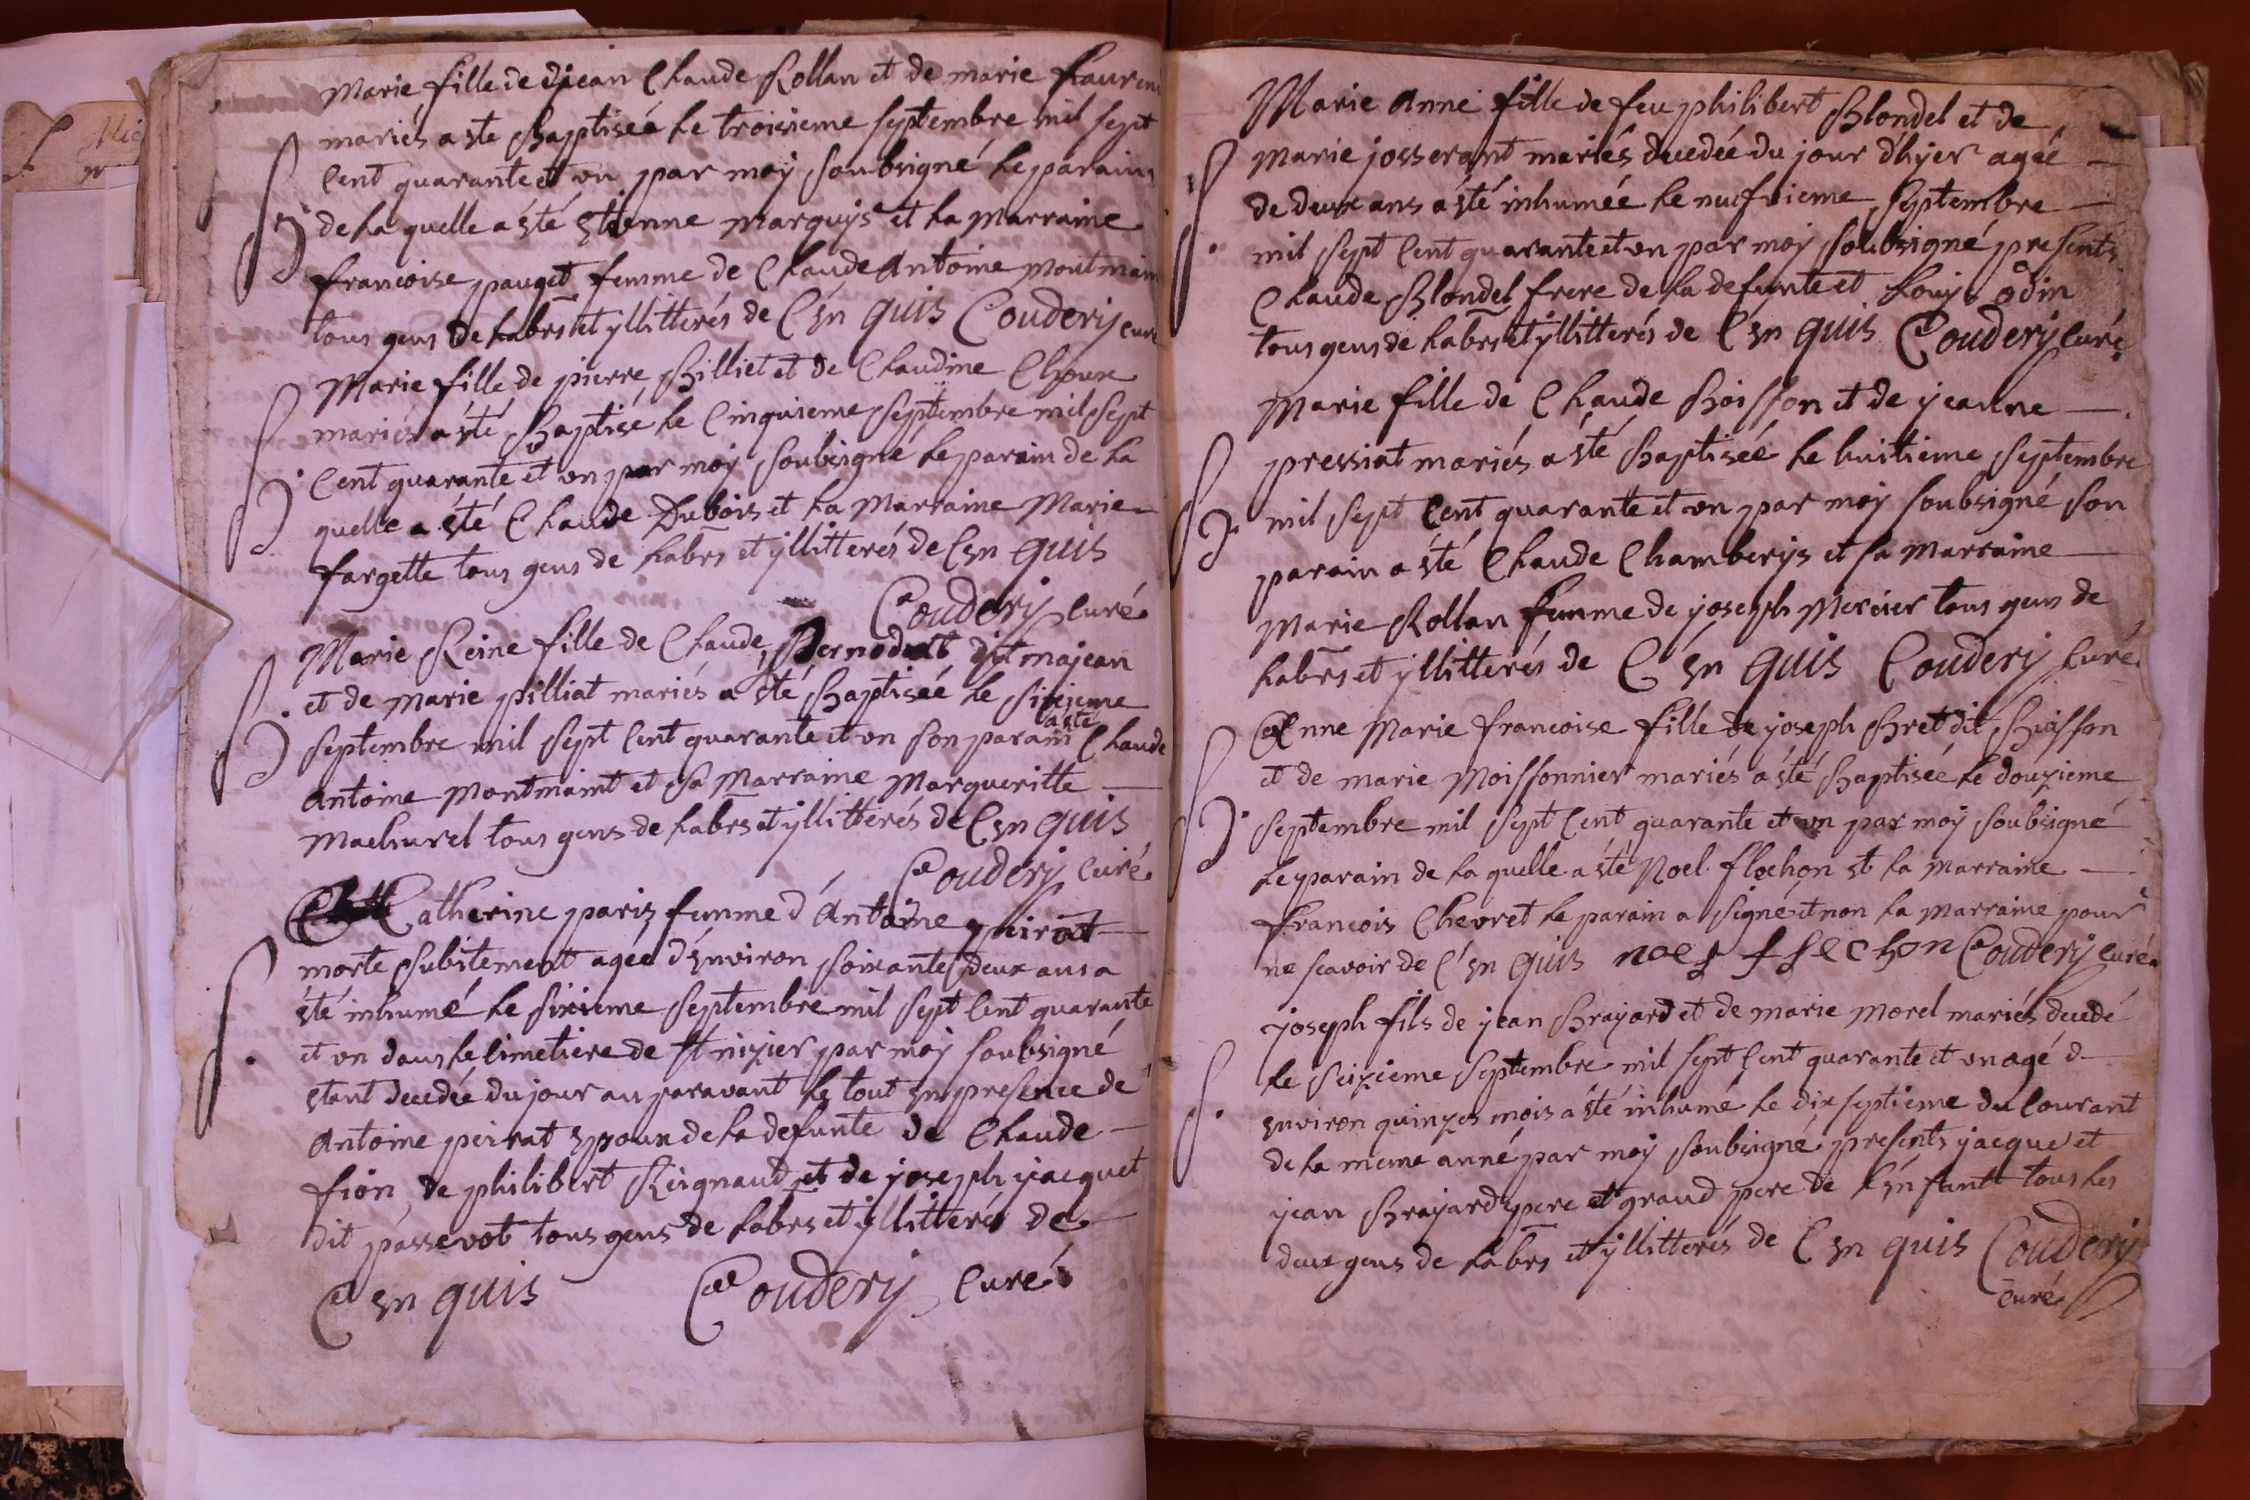 Marie fille de djean Claude Rollan et de marie Laurent
mariés a sté Baptisée le troisieme septembre mil sept
Cent quarante et un par moy soubsigné le parain
B. de la quelle a sté Etienne Marquis et la Marraine
francoise pauget femme de Claude Antoine Montmain
tous gens de labrs et yllitterés de C en quis Couderij curé
Marie fille de pierre Billiet et de Claudine Choux
mariés a sté Baptisé le Cinquieme septembre mil sept
B. Cent quarante et un par moy soubsigné le parain de la
quelle a sté Claude Dubois et la Marraine Marie
fargette tous gens de labrs et yllitterés de C en quis
Couderij Curé
Marie Reine fille de Claude Bernodat dit majean
et de Marie pilliat mariés a sté Baptisée le sixieme
a sté
B. septembre mil sept Cent quarante et un son parain Claude
Antoine Montmaint et sa Marraine Margueritte
Machurel tous gens de labrs et yllitterés de C en quis
Couderij Curé
Catherine paris femme d'Antoine peirat
morte subitement agée d'Environ soixante deux ans a
sté inhumé le sixieme septembre mil sept Cent quarante
S. et un dans le Cimetiere de st nizier par moy soubsigné
Etant decedée du jour au paravant le tout en presence de
Antoine peirat Epoux de la defunte de Claude
fion, de philibert Reignaud et de joseph yacquet
dit passevot tous gens de labrs et yllitterés de
C en quis Couderij Curé
Marie Anne fille de feu philibert Blondel et de
Marie josserant mariés decedée du jour d'hyer agée
de deux ans a sté inhumée le neufvieme septembre
S. mil sept Cent quarante et un par moy soubsigné presents
Claude Blondel frere de la defunte et Louis odin
tous gens de labrs et yllitterés de C en quis Couderij Curé
Marie fille de Claude Boisson et de yeanne
pressiat mariés a sté Baptisée le huitieme septembre
B. mil sept Cent quarante et un par moy soubsigné son
parain a sté Claude Chamberys et sa Marraine
Marie Rollan femme de yoseph Mercier tous gens de
labrs et yllitterés de C en quis Couderij Curé
Anne Marie francoise fille de joseph Bret dit Buisson
et de marie Moissonnier mariés a sté Baptisée le douzieme
B. septembre mil sept Cent quarante et un par moy soubsigné
le parain de la quelle a sté Noel flochon et la Marraine
francois Chevret le parain a signé et non la Marraine pour
ne scavoir de C en quis noel flechon Couderij Curé
yoseph fils de yean Brayard et de marie Morel mariés decedé
le seizieme septembre mil sept Cent quarante et un agé d
S. Environ quinzes mois a sté inhumé le dix septieme du Courant
de la meme anné par moy soubsigné presents yacque et
yean Brayard pere et grand pere de l'Enfant tous les
deux gens de labrs et yllitterés de C en quis Couderij
Curé